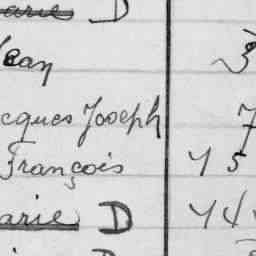 arie D
Jean 3
cques Joseph 7
François 45
arie D 44